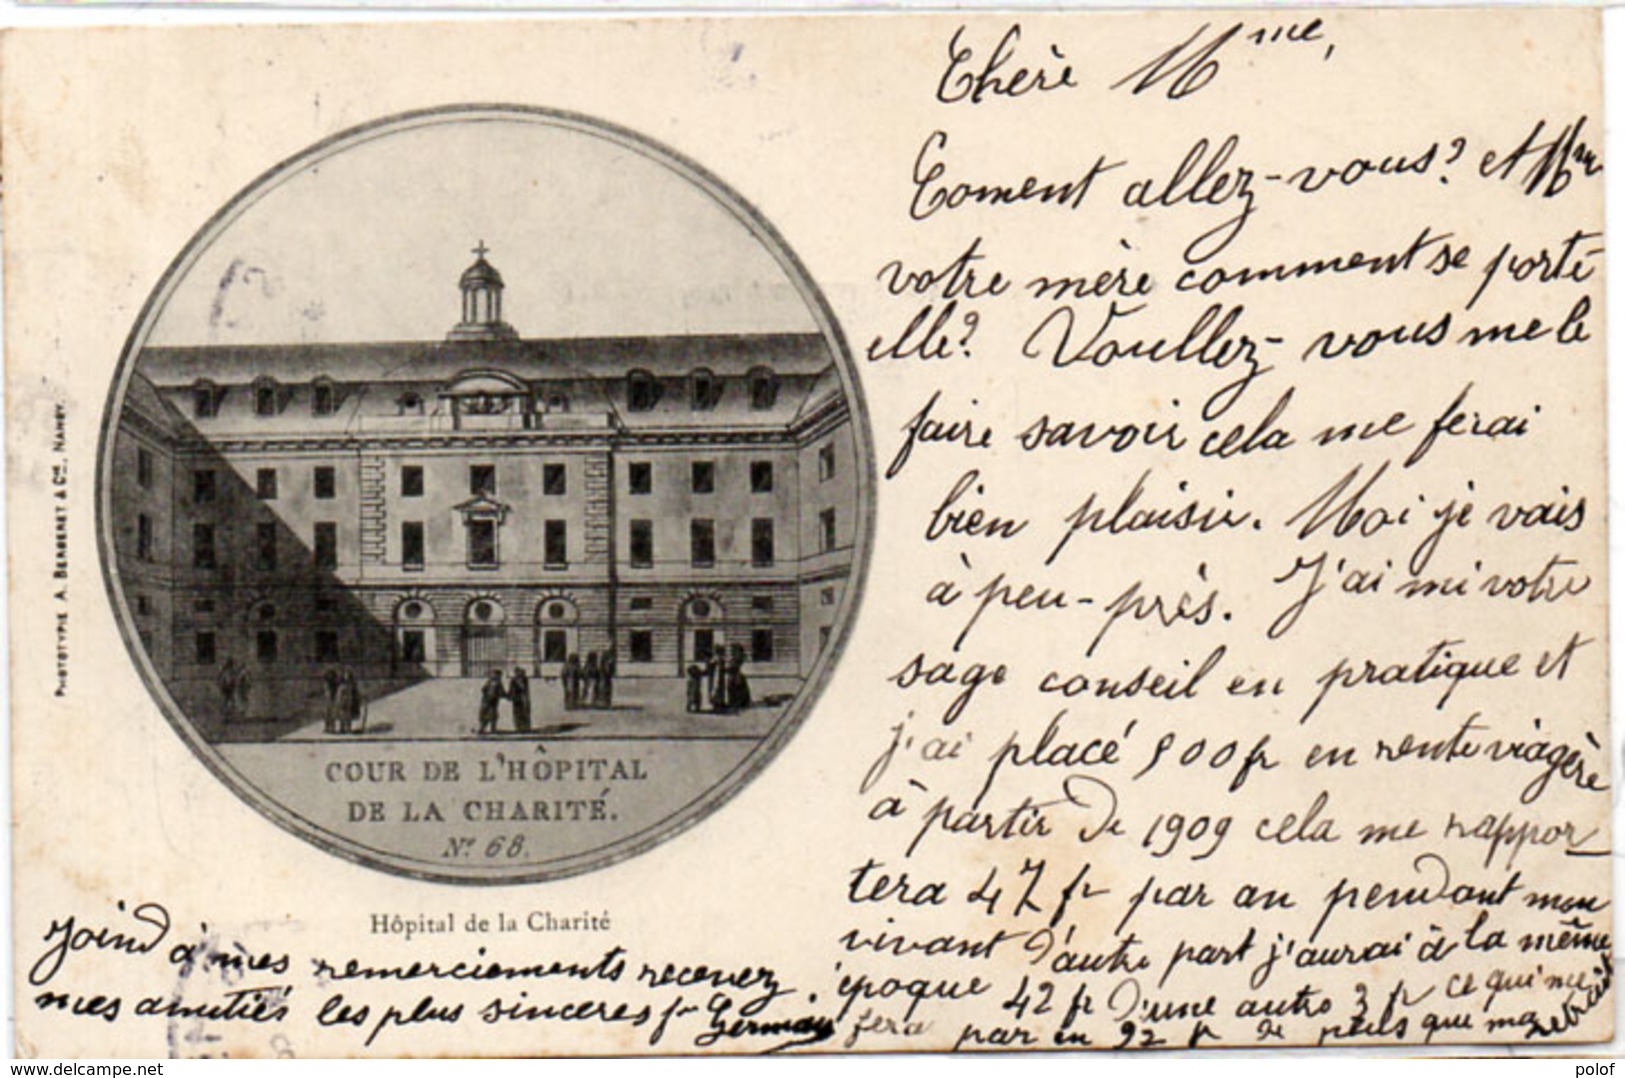 Chère Mme,
Coment allez-vous? et Mme
votre mère comment se porte
elle? Voullez-vous me le
faire savoir cela me ferai
bien plaisir. Moi je vais
à peu-près. J'ai mi votre
sage conseil en pratique et
j'ai placé 500 fr en rente viagère
à partir de 1909 cela me rappor
tera 47 fr par an pendant mon
vivant d'autre part j'aurai à la même
époque 42 fr d'une autre 3 fr ce qui me
fera par en 92 fr de plus que ma retraite
Joind à mes remerciements recevez
mes amitiés les plus sincères fr Germay
PHOTOTYPIE A. BERGERET & Cie, NANCY.
COUR DE L'HÔPITAL
DE LA CHARITÉ.
No. 68.
Hôpital de la Charité
delcampe.net
polof